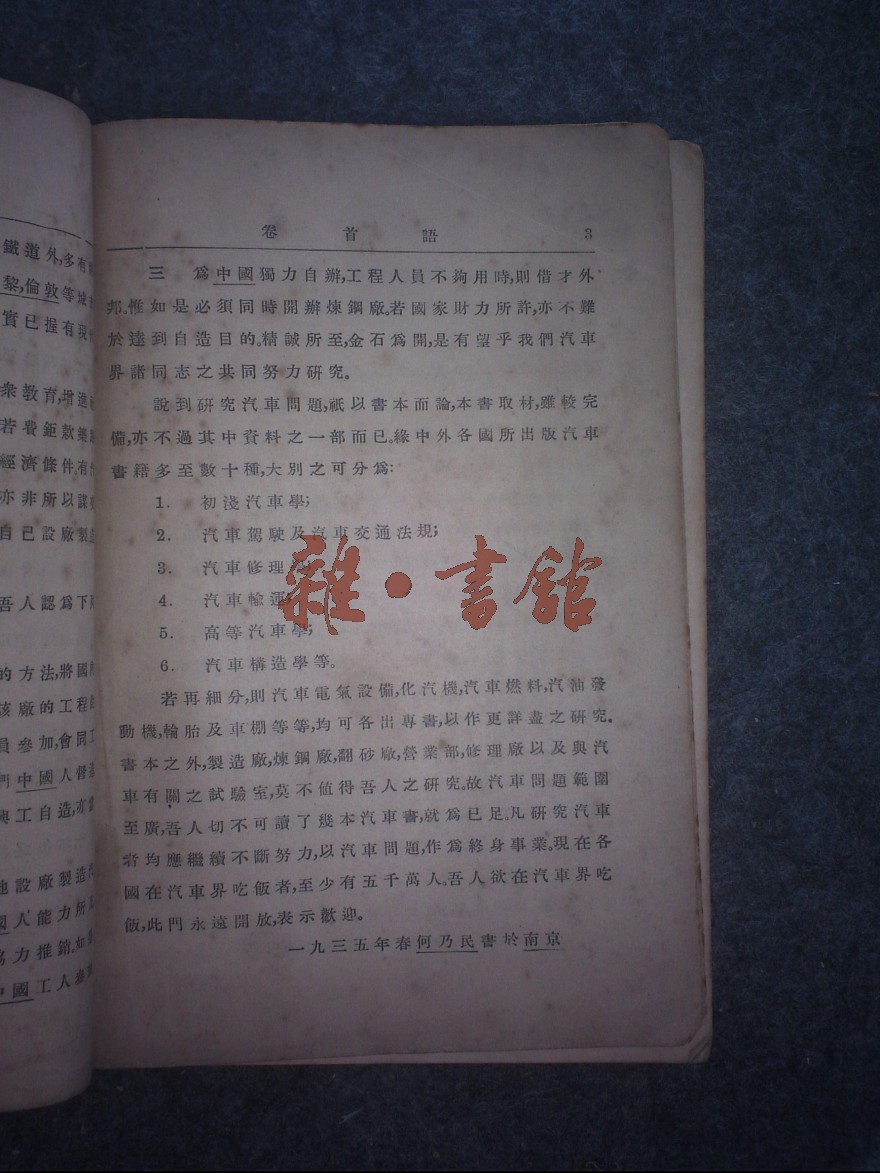 鐵道外,多有
黎,倫敦等
實已握有現
衆教育,增進
若費鉅款築
經濟條件,有
亦非所以謀
自己設廠製造
吾人認爲下
的方法,將國
該廠的工程
員參加,會同
們中國人督
興工自造,亦
地設廠製造
國人能力所
協力推銷。如
中國工人參
卷首語 3
三 爲中國獨力自辦,工程人員不夠用時,則借才外
邦。惟如是必須同時開辦煉鋼廠。若國家財力所許,亦不難
於達到自造目的。精誠所至,金石爲開,是有望乎我們汽車
界諸同志之共同努力研究。
說到研究汽車問題,祇以書本而論,本書取材,雖較完
備,亦不過其中資料之一部而已。緣中外各國所出版汽車
書籍多至數十種,大別之可分爲:
1. 初淺汽車學;
2. 汽車駕駛及汽車交通法規;
3. 汽車修理
4. 汽車輸運
5. 高等汽車學;
6. 汽車構造學等。
雜·書舘
若再細分,則汽車電氣設備,化汽機,汽車燃料,汽油發
動機,輪胎及車棚等等,均可各出專書,以作更詳盡之研究。
書本之外,製造廠,煉鋼廠,翻砂廠,營業部,修理廠以及與汽
車有關之試驗室,莫不值得吾人之研究。故汽車問題範圍
至廣,吾人切不可讀了幾本汽車書,就爲已足。凡研究汽車
者均應繼續不斷努力,以汽車問題,作爲終身事業。現在各
國在汽車界吃飯者,至少有五千萬人。吾人欲在汽車界吃
飯,此門永遠開放,表示歡迎。
一九三五年春何乃民書於南京